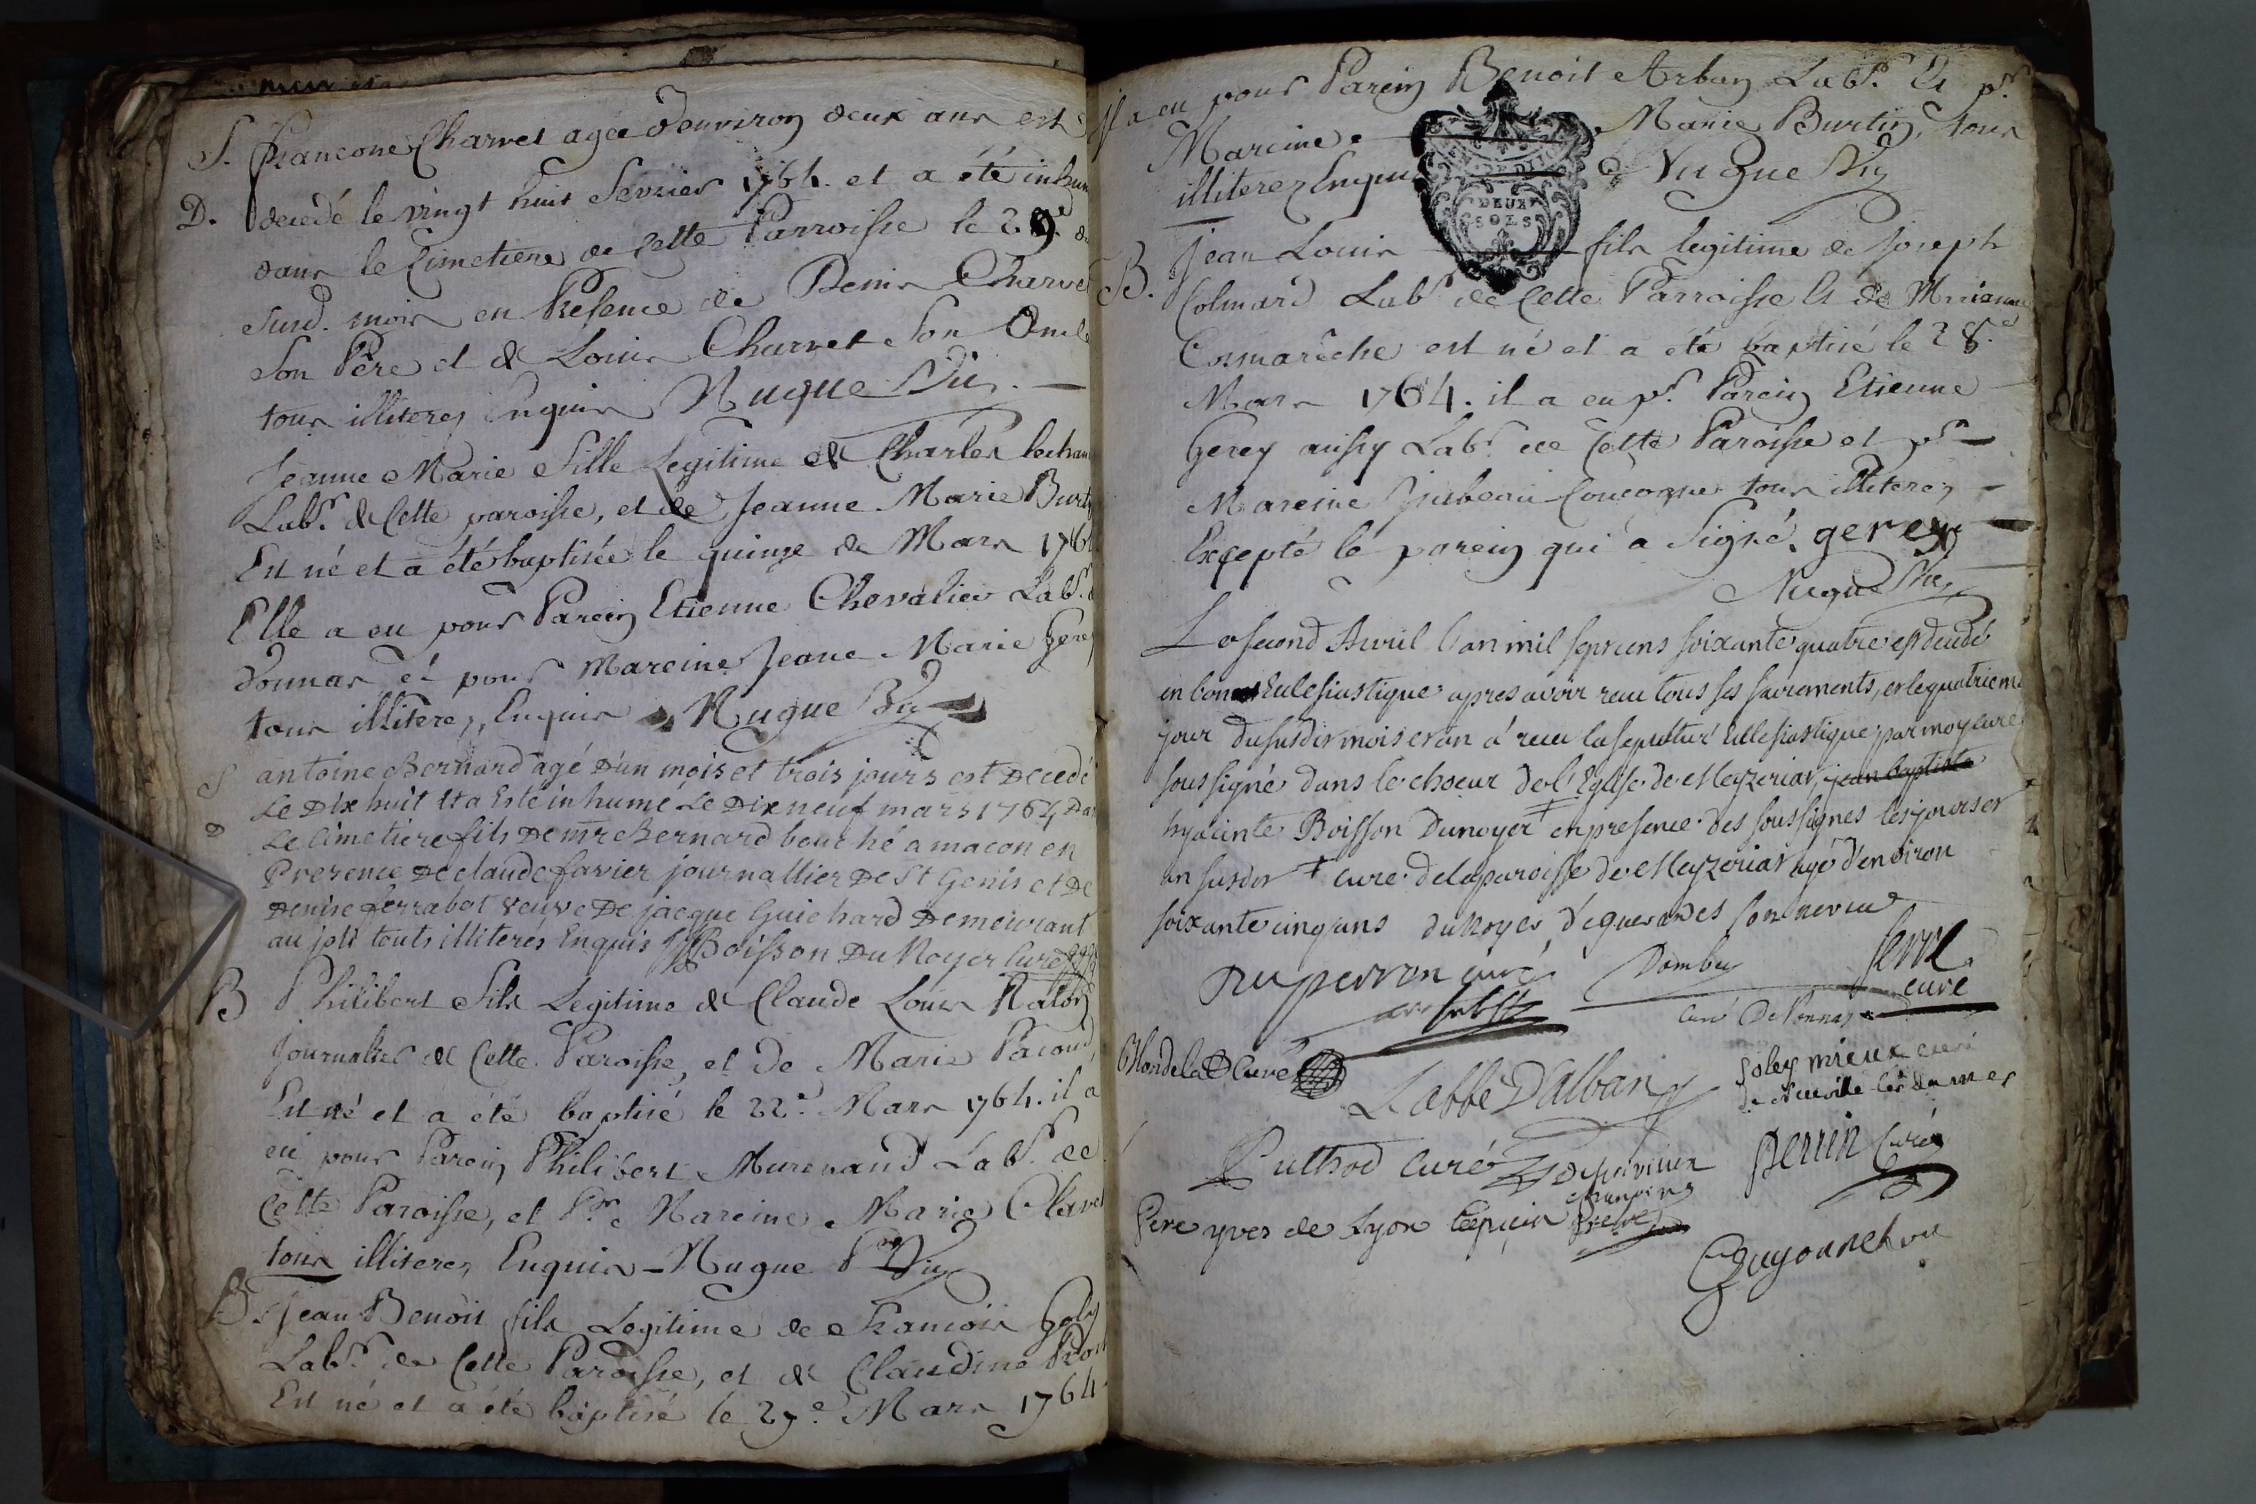 S. françoise Charvet agée d'environ deux ans est
D. decedé le vingt huit fevrier 1764. et a été inhum
dans le Cimetiere de Cette Parroisse le 29e. du
susd. mois en Presence de Denis Charvet
son Pere et de Louis Charvet son Oncle
tous illiterez Enquis Nugue Vic.
Jeanne Marie fille Legitime de Charles
Labr. de Cette paroisse, et de Jeanne Marie Burtin
Est né et a été baptisée le quinze de Mars 1764
Elle a eu pour Parein Etienne Chevalier Labr. de
Domas et pour Mareine Jeane Marie Gerey
tous illiterez, Enquis Nugue Vic
S antoine Bernard agé Dun mois et trois jours est Decedé
Le Dix huit et a Esté inhumé Le Dix neuf mars 1764 Dan
D Le Cimetiere fils De mr Bernard bouché a macon en
Presence De claude favier journallier De St Genis et De
Denise ferrabat veuve De jacque Guichard Demeurant
au joli touts illiterés Enquis Boisson Du Noyer Curé
B Philibert fils Legitime de Claude Louis
Journalier de Cette Paroisse, et de Marie Pacoud,
Est né et a été baptisé le 22e. Mars 1764. il a
eu pour Parein Philibert Labr. de
Cette Paroisse, et Pr. Mareine Marie
tous illiterez Enquis - Nugue Vic
B. Jean Benoit fils Legitime de francois Goly
Labr. de Cette Paroisse, et de Claudine
Est né et a été baptisé le 27e. Mars 1764.
il a eu pour Parein Benoit Arban Labr. Et pr.
Mareine Marie Burtin, tous
illiterez Enquis Nugue Vic
DEUX
SOLS
B. Jean Louis fils legitime de Joseph
Colmard Labr. de Cette Parroisse Et de Marianne
Cosmarêche est né et a été baptisé le 28e
Mars 1764. il a eu pr. Parein Etienne
Gerey aussy Labr. de Cette Paroisse et pr
Mareine tous illiterez
Excepté le parein qui a signé. gerey
Nugue Vic
Le second Avril l'an mil septcens soixante quatre est decedé
Eclesiastique apres avoir recu tous ses sacrements, et le quatrieme
jour du susdit mois et an á recu la sepulture Ecclesiastique par moy curé
soussigné dans le choeur de l'Eglise de Meyzeriat, jean baptiste
hyacinte Boisson Dunoyer ‡ en presence des soussignes les jour et
an susdit ‡ curé de la paroisse de Meyzeriat agé d'environ
soixante cinq ans du Noyer d'equerandes son neveu
Duperron curé Dombey Serre
curé
curé De Vonnas
Blondela Curé
L'abbé D'alban
curé
de Neuville les dames
Puthod Curé Perrin Curé
Pere yves de Lyon Capucin Pretre
Guyonnet